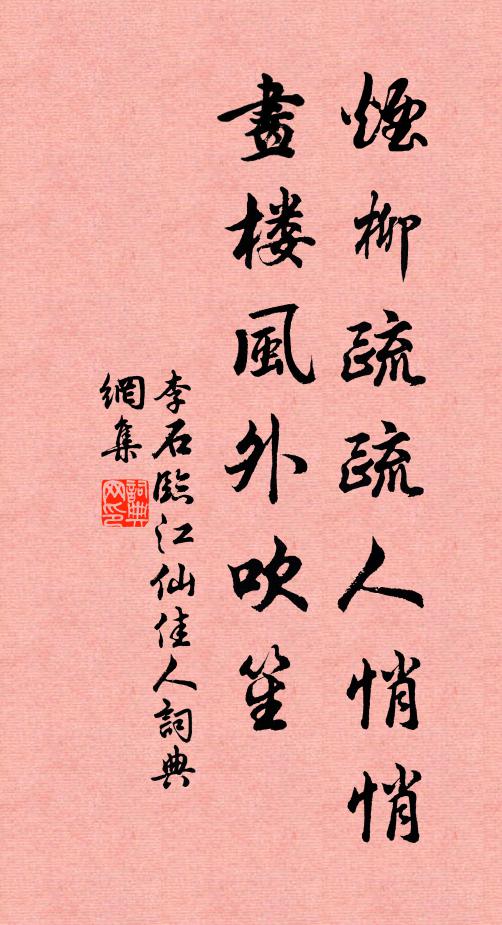 煙柳疏疏人悄悄
畫楼風外吹笙
李石臨江仙佳人詞典
網集
詞典網印